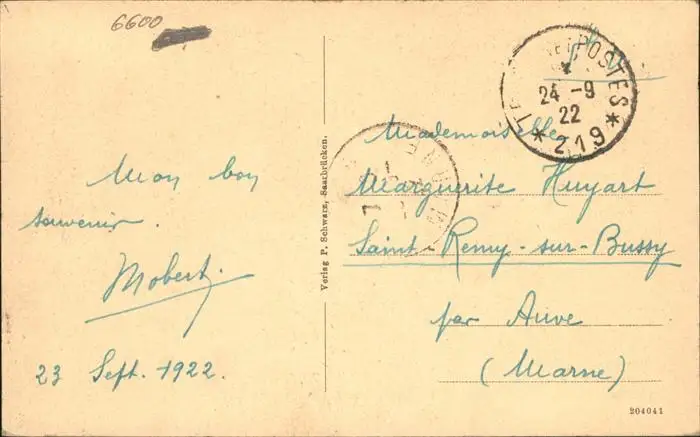 6600
Mon bon
souvenir.
Mobert.
23 Sept. 1922.
Verlag P. Schwarz, Saarbrücken.
POSTES
24 - 9
22
* 219 *
Mademoiselle
Marguerite Huyart
Saint-Remy-sur-Bussy
par Auve
(Marne)
204041